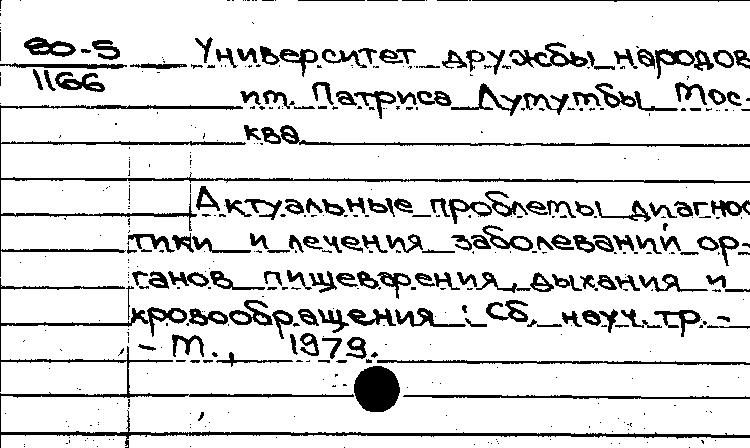 80-5
1166
Университет дружбы народов
им. Патриса Лумумбы. Мос-
ква.
Актуальные проблемы диагнос
тики и лечения заболеваний ор-
ганов пищеварения, дыхания и
кровообращения : Сб. науч. тр. -
- М., 1979.